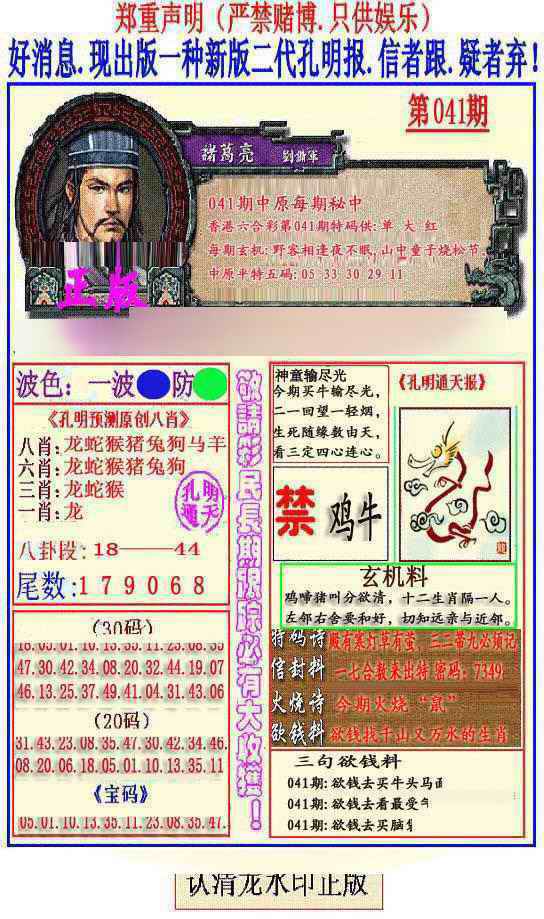 郑重声明（严禁赌博.只供娱乐）
好消息.现出版一种新版二代孔明报.信者跟.疑者弃!
第041期
諸葛亮
041期中原每期秘中
香港六合彩第041期特码供:单 大 红
每期玄机:野客相逢夜不眠,山中童子烧松节
中原平特五码:05 33 30 29 11
正版
波色：一波 防
《孔明预测原创八肖》
八肖:龙蛇猴猪兔狗马羊
六肖:龙蛇猴猪兔狗
三肖:龙蛇猴
一肖:龙
孔明
通天
八卦段:18——44
尾数:179068
(30码)
47.30.42.34.08.20.32.44.19.07
46.13.25.37.49.41.04.31.43.06
(20码)
31.43.23.08.35.47.30.42.34.46.
08.20.06.18.05.01.10.13.35.11
《宝码》
05.01.10.13.35.11.23.08.35.47.
敬請彩民長期跟踪必有大收獲！
神童输尽光
今期买牛输尽光,
二一回望一轻烟,
生死随缘数由天,
看三定四心连心。
《孔明通天报》
禁 鸡牛
玄机料
鸡啼猪叫分欲清，十二生肖隔一人。
左邻右舍要和好，切知远亲与近邻。
特码诗 厩有寒灯草有萤，三二带九必须记
信封料 一七合数来出特 密码：7349
火烧诗 今期火烧“鼠”
欲钱料 欲钱找千山又万水的生肖
三句欲钱料
041期:欲钱去买牛头马面
041期:欲钱去看最受
041期:欲钱去买脑
认清龙水印正版